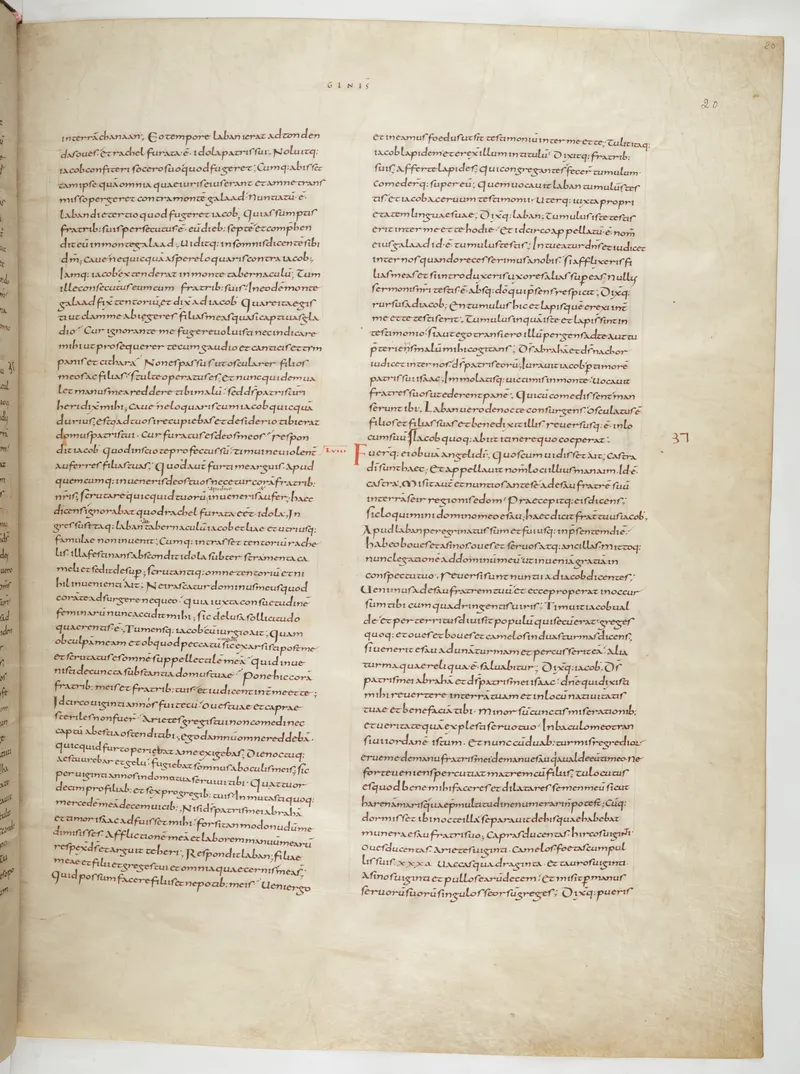 GENIS
20
20
interrachanaan, Eotempore laban ierat adtonden
dasoues, etrachel furata ē idola patris sui, Noluitq;
iacob confiteri socero suo quod fugeret; Cumq; abisset
tam ipse quam omnia quae iuris sui erant et amne trans
misso pergeret contra montē galaad nuntiatū ē
laban die tertio quod fugeret iacob, Qui assumptis
fratrib; suis persecutus ē eū dieb; septē et comphen
dit eū in monte galaad; Uiditq; in somnis dicentē sibi
dm̄; caue ne quicquā aspere loquaris contra iacob;
Iamq; iacob extenderat in monte tabernaculū; Cum
ille consecutus eum cum fratrib; suis; In eodē monte
galaad fixit tentoriū, et dix̄ ad iacob Quare ita egisti
ut clam me abigeres filias meas quasi captiuas gla
dio Cur ignorante me fugere uoluisti nec indicare
mihi ut prosequerer te cum gaudio et canticis et tym
panis et cithara Non es passus ut oscularer filios
meos ac filias; Stulte operatus es, Et nunc quidem ua
let manus mea reddere tibi malū sed ds̄ patris ur̄i
heri dix̄ mihi, caue ne loquaris cum iacob quicquā
durius, esto ad tuos ire cupiebas et desiderio tibi erat
domus patris tui Cur furatus es deos meos respon
dit iacob Quod inscio te profectus sū timui ne uiolent
auferres filias tuas; Quod aut̄ furti me arguis Apud
quemcumq; inueneris deos tuos necetur corā fratrib;
nr̄is; scrutare quicquid tuorū inueneris aufer; haec
dicens ignorabat quod rachel furata eēt idola, In
gressus itaq; laban tabernaculū iacob et liae et utriusq;
famulae non inuenit; Cumq; intrasset tentoriū rache
lis illa festinans abscondit idola subter stramenta ca
meli et sedit desup; scrutantiq; omne tentoriū et ni
hil inuenienti Ait; Ne irascatur dominus meus quod
corā te adsurgere nequeo quia iuxta consuetudinē
feminarū nunc accidit mihi; sic delusa sollicitudo
quaerentis ē, Tumensq; iacob cū iurgio ait; Quam
ob culpā meam et ob quod peccatū sic exarsisti post me
et scrutatus es omnē suppellectilē meā Quid inue
nisti de cuncta substantia domus tuae Pone hic corā
fratrib; meis et fratrib; tuis et iudicent int̄ me et te;
Idcirco uiginti annos fui tecū Oues tuae et caprae
steriles non fuer̄ Arietes gregis tui non comedi nec
captū a bestia ostendi tibi, ego damnū omne reddebā
quicquid furto periebat a me exigebas; Die noctuq;
aestu urebar et gelu fugiebat somnus ab oculis meis; sic
per uiginti annos in domo tua seruiui tibi Quattuor
decim pro filiab; et sex pro gregib; tuis; In mutasti quoq;
mercedē meā decem uicib; Nisi ds̄ patris mei abrahā
et timor isaac adfuisset mihi forsitan modo nudū me
dimisisses Afflictionē meā et laborem manuū mearū
respexit ds̄ et arguit te heri, Respondit laban; filiae
meae et filii et greges tui et omnia quae cernis mea s̄;
Quid possum facere filiis et nepotib; meis Ueni ergo
et ineamus foedus ut sit testimoniū inter me et te; Tulit itaq;
iacob lapidem et erexit illum in titulū Dixitq; fratrib;
suis, Afferte lapides, Qui congregantes fecer̄ tumulum
Comeder̄q; super eū; Quem uocauit laban tumulū tes
tis et iacob aceruum testimonii Uterq; iuxta propri
etatem linguae suae; Dixq; laban; Tumulus iste testis
erit inter me et te hodie Et idcirco appellatū ē nom̄
eius galaad id ē tumulus testis; Intueatur dn̄s et iudicet
inter nos quando recesserimus a nobis si afflixeris fi
lias meas et si introduxeris uxores alias sup̄ eas, Nullus
sermonis nr̄i testis ē absq; do qui p̄sens respicit; Dixq;
rursus ad iacob; En tumulus hic et lapis quē erexi int̄
me et te testis erit; Tumulus inquā iste et lapis sint in
testimonio si aut ego transiero illū pergens ad te aut tu
p̄terieris malū mihi cogitans; Ds̄ abrahā et ds̄ nachor
iudicet inter nos ds̄ patris eorū, Iurauit iacob p̄ timorē
patris sui isaac; Immolatisq; uictimis in monte uocauit
fratres suos ut ederent panē Qui cū comedissent man
serunt ibi, Laban uero de nocte consurgens Osculatus ē
filios et filias suas et benedixit illis reuersusq; ē in lo
cum suū Iacob quoq; abiit itinere quo coeperat;
Fuer̄q; ei obuiā angeli di; Quos cum uidisset ait; Castra
di sunt haec; Et appellauit nom̄ loci illius manaim id ē
castra, Misit aut̄ et nuntios ante se ad esau fratrē suū
in terrā seir regionis edom Praecepitq; eis dicens;
sic loquimini domino meo esau; haec dicit frat̄ tuus iacob,
Apud laban peregrinatus sum et fui usq; inp̄sentem diē
habeo boues et asinos oues et seruos atq; ancillas mittoq;
nunc legationē ad dominū meū ut inueniā gratiā in
conspectu tuo, reuersi sunt nuntii ad iacob dicentes;
Uenimus ad esau fratrem tuū et ecce properat in occur
sum tibi cum quadringentis uiris; Timuit iacob ual
de et perterritus diuisit populū qui secū erat greges
quoq; et oues et boues et camelos in duas turmas dicens;
si uenerit esau ad unā turmam et percusserit eā Alia
turma quae reliqua ē saluabitur; Dixq; iacob, Ds̄
patris mei abrahā et ds̄ patris mei isaac; dn̄e qui dixisti
mihi reuertere in terrā tuam et in locū natiuitatis
tuae et benefaciā tibi minor sū cunctis miseratiōib;
et ueritate quā explesti seruo tuo In baculo meo tran
siui iordanē istum, Et nunc cū duab; turmis regredior
erue me de manu fratris mei de manu esau qa ualde eū timeo ne
forte ueniens percutiat matrem cū filiis; tu locutus
es quod bene mihi faceres et dilatares semen meū sicut
harenā maris quae p̄ multitudine numerari n̄ potest; Cūq;
dormisset ibi nocte illa separauit de his quae habebat
munera esau fratri suo, Capras ducentas hircos uiginti
oues ducentas Arietes uiginti, Camelos foetas cum pul
lis suis xxx a Uaccas quadraginta Et tauros uiginti
Asinos uiginti et pullos earū decem; Et misit p̄ manus
seruorū suorū singulos seorsū greges; Dixq; pueris
37